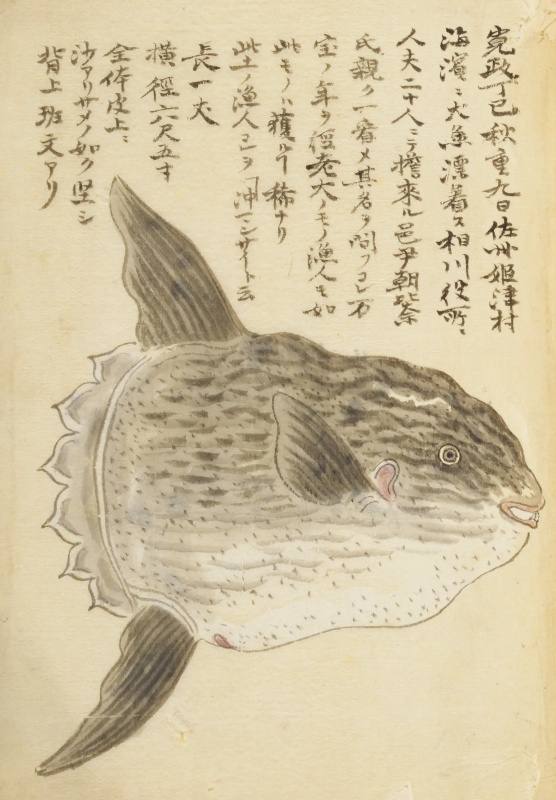 寛政丁巳秋重九日佐州姫津村
海濱ニ大魚漂着ス相川役所ニ
人夫二十人ニテ擔來ル邑尹朝比奈
氏親ク一審メ其名ヲ問フコレ万
宝ノ年ヲ徑老大ノモノ漁人モ如
此モノハ獲ルヿ稀ナリ
此土ノ漁人コレヲ沖マンサイト云
長一丈
横徑六尺五寸
全体皮上ニ
沙アリサメノ如ク堅シ
背上班文アリ